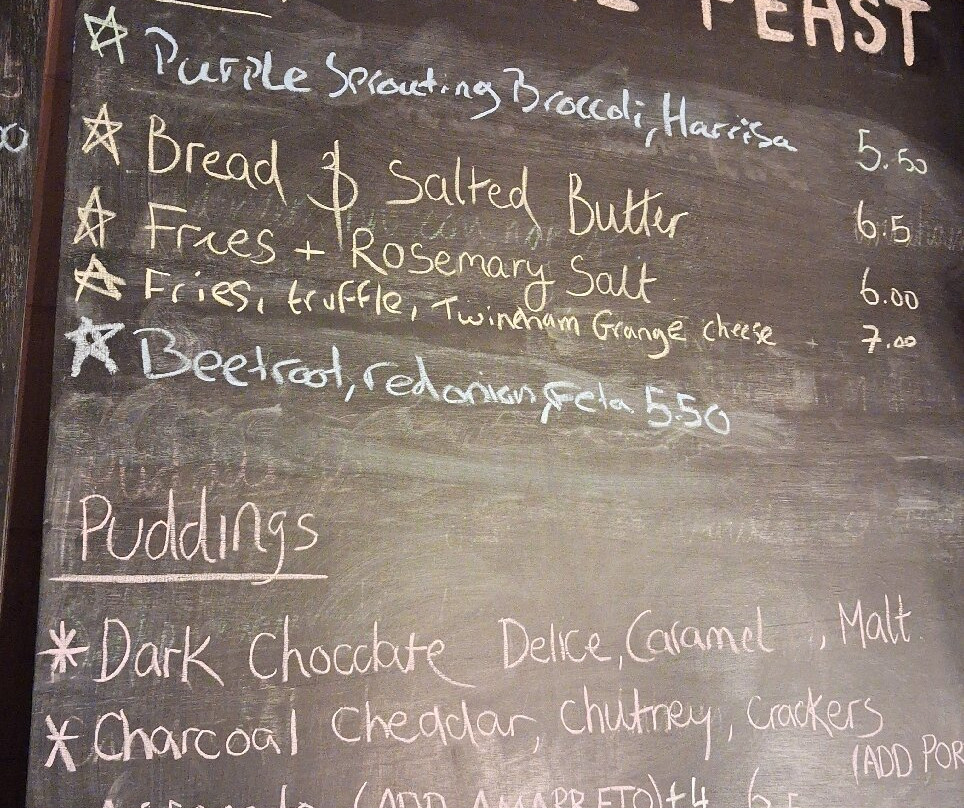 FEAST
Purple Sprouting Broccoli, Harrisa 5.50
Bread & Salted Butter 6.5
Fries + Rosemary Salt 6.00
Fries, truffle, Twineham Grange cheese 7.00
Beetroot, red onion, Feta 5.50
Puddings
* Dark Chocolate Delice, Caramel, Malt
* Charcoal Cheddar, Chutney, Crackers
(ADD POR
(ADD AMARRETO)+4